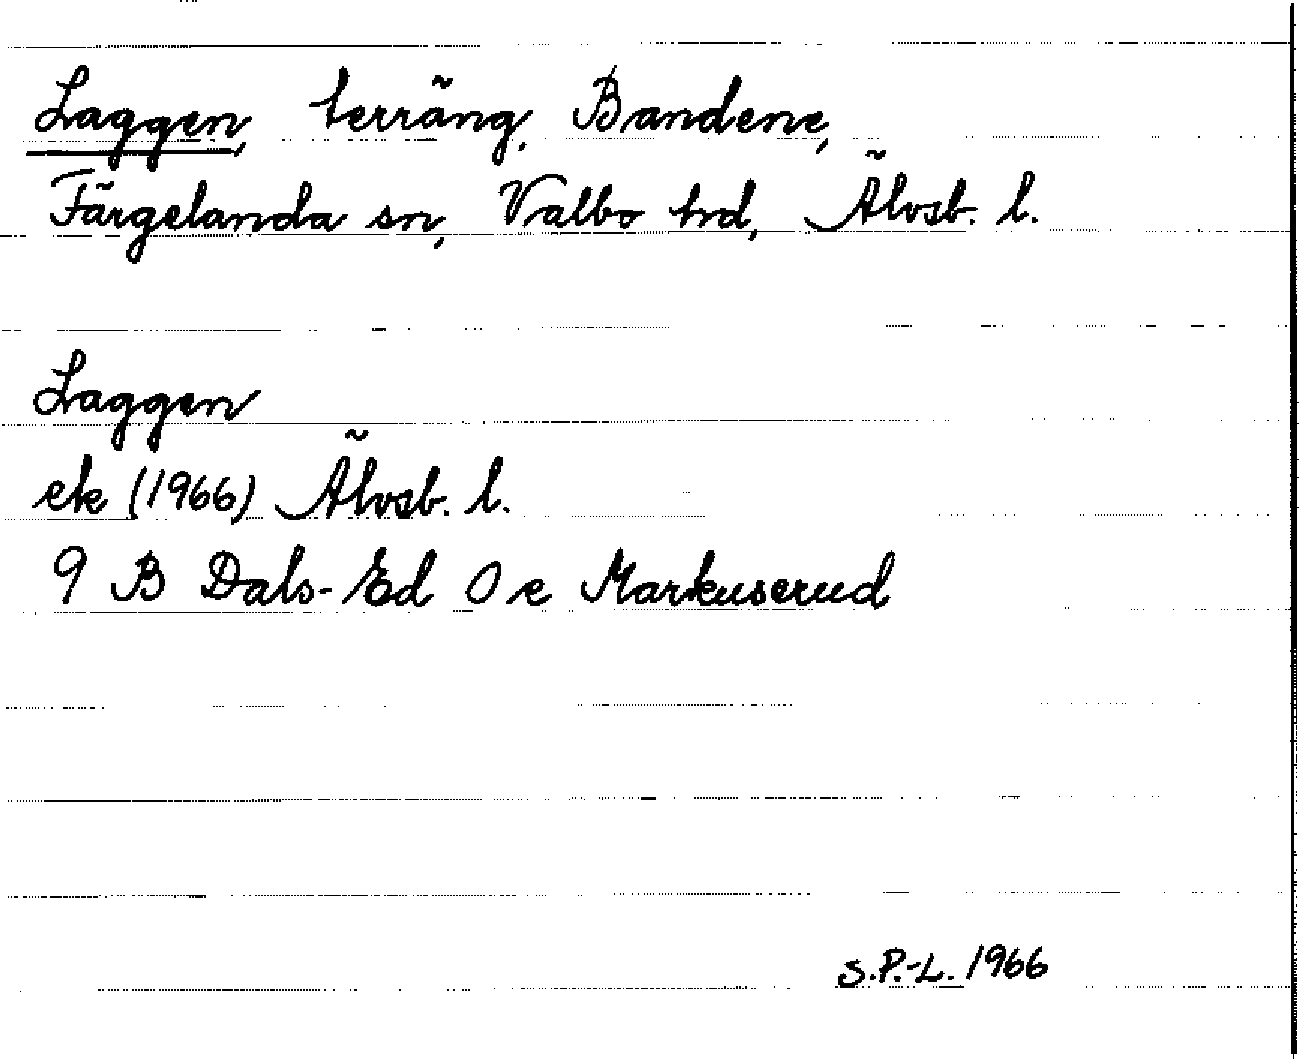 Laggen, terräng, Bandene,
Färgelanda sn, Valbo hd, Älvsb. l.
Laggen
ek (1966) Älvsb. l.
9 B Dals-Ed 0 e Markuserud
S.P.-L. 1966